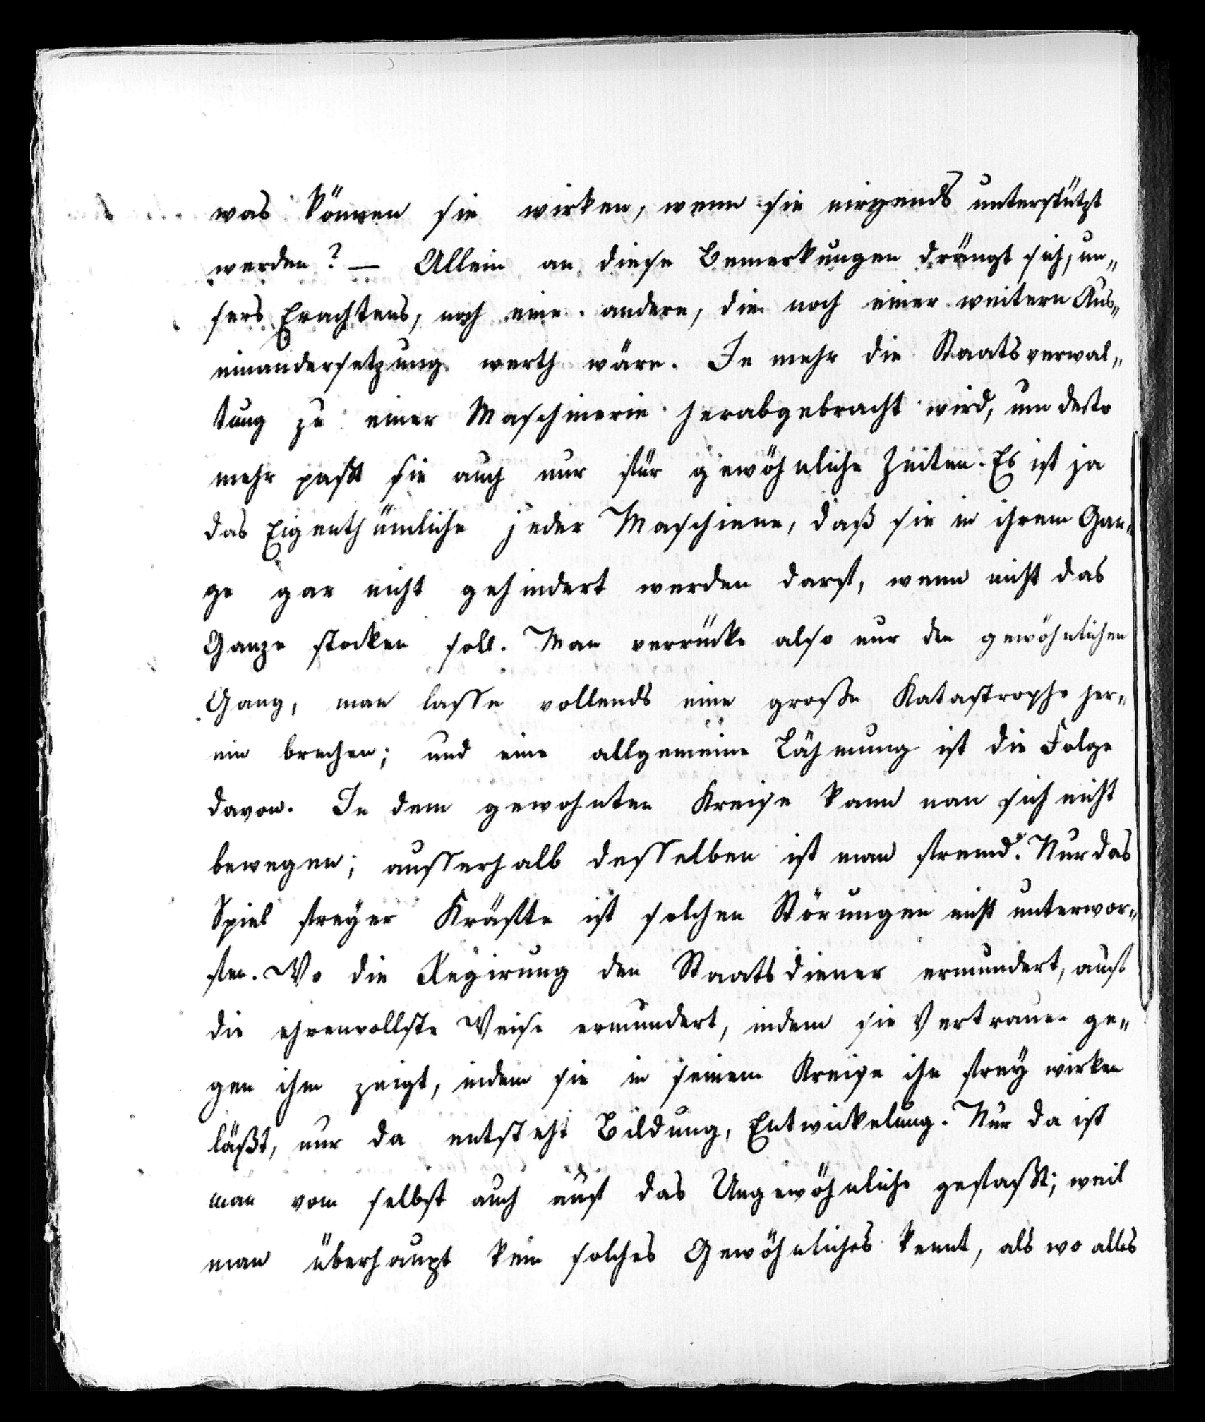 was können sie wirken, wenn sie nirgends unterstützt
werden? — Allein an diese Bemerkungen drängt sich, un„
sers Erachtens, noch eine andere, die noch einer weitern Aus„
einandersetzung werth wäre. Je mehr die Staatsverwal„
tung zu einer Maschinerie herabgebracht wird, um desto
mehr paßt sie auch nur für gewöhnliche Zeiten. Es ist ja
das Eigenthümliche jeder Maschiene, daß sie in ihrem Gan„
ge gar nicht gehindert werden darf, wenn nicht das
Ganze stocken soll. Man verrücke also nur den gewöhnlichen
Gang, man lasse vollends eine große Katastrophe her„
ein brechen; und eine allgemeine Lähmung ist die Folge
davon. In dem gewohnten Kreise kann man sich nicht
bewegen; ausserhalb desselben ist man fremd. Nur das
Spiel freyer Kräfte ist solchen Störungen nicht unterwor„
fen. Wo die Regirung den Staatsdiener ermundert, auf
die ehrenvollste Weise ermundert, indem sie Vertrauen ge„
gen ihm zeigt, indem sie in seinem Kreise ihn frey wirken
läßt, nur da entsteht Bildung, Entwickelung. Nur da ist
man vom selbst auch auf das Ungewöhnliche gefaßt; weil
man überhaupt kein solches Gewöhnliches kennt, als wo alles